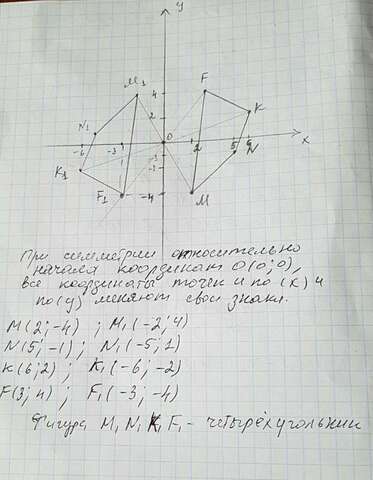 y
M₁
F
4
K
N₁
2
0
x
-6
-3
2
5
6
N
K₁
F₁
-4
M
При симметрии относительно
начала координат O(0;0),
все координаты точек и по (x) и
по (y) меняют свои знаки.
M(2;-4) ; M₁(-2;4)
N(5;-1) ; N₁(-5;1)
K(6;2) ; K₁(-6;-2)
F(3;4) ; F₁(-3;-4)
Фигура M₁N₁K₁F₁ - четырёхугольник